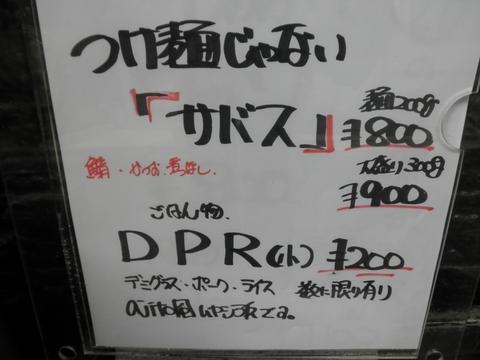 つけ麺じゃない
「サバス」
麺200g
¥800
鯖・かつお・煮干し
大盛り300g
¥900
ごはん物
DPR(小) ¥200
デミグラス・ポーク・ライス 数に限り有り
ajito風
です。